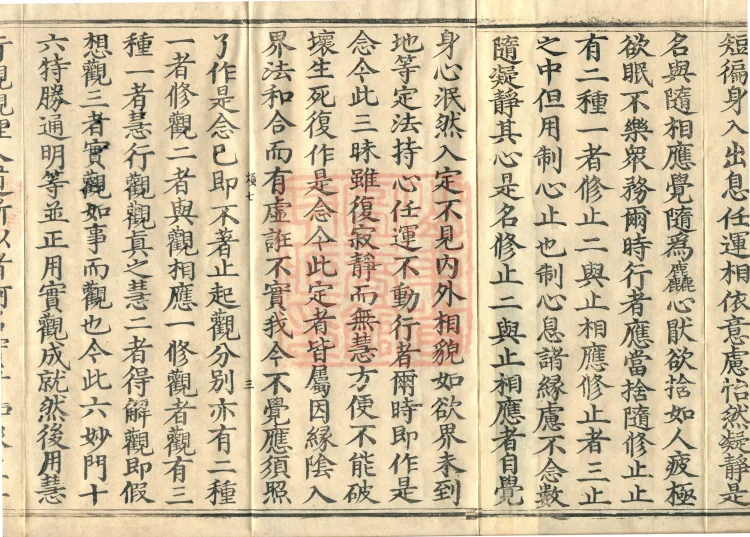 短徧身入出息任運相依意慮怡然凝静是
名與隨相應覺隨為麤心猒欲捨如人疲極
欲眠不樂衆務爾時行者應當捨隨修止止
有二種一者修止二與止相應修止者三止
之中但用制心止也制心息諸緣慮不念數
隨凝静其心是名修止二與止相應者自覺
身心泯然入定不見内外相貌如欲界未到
地等定法持心任運不動行者爾時即作是
念今此三昧雖復寂静而無慧方便不能破
壞生死復作是念今此定者皆屬因緣陰入
界法和合而有虛誑不實我今不覺應須照
了作是念已即不著止起觀分别亦有二種
一者修觀二者與觀相應一修觀者觀有三
種一者慧行觀觀真之慧二者得解觀即假
想觀三者實觀如事而觀也今此六妙門十
六特勝通明等並正用實觀成就然後用慧